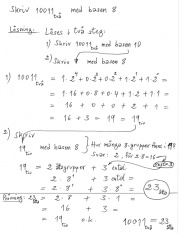 Skriv 10011 två med basen 8
Lösning: Löses i två steg:
1) Skriv 10011 två med basen 10
2) Skriv med basen 8
1) 10011 två = 1·2⁴ + 0·2³ + 0·2² + 1·2¹ + 1·2⁰ =
= 1·16 + 0·8 + 0·4 + 1·2 + 1·1 =
= 16 + 0 + 0 + 2 + 1 =
= 16 + 3 = 19 = 19 tio
2) Skriv
19 tio med basen 8 Hur många 8-grupper finns i 19?
Svar: 2, för 2·8=16
19 tio = 2 åttagrupper + 3 ental
= 2·8¹ + 3 ental
= 2·8¹ + 3·8⁰ = 23 åtta
Prövning: 23 åtta = 2·8¹ + 3·8⁰ =
= 2·8 + 3·1 =
= 16 + 3 =
= 19 tio o.k. 10011 två = 23 åtta